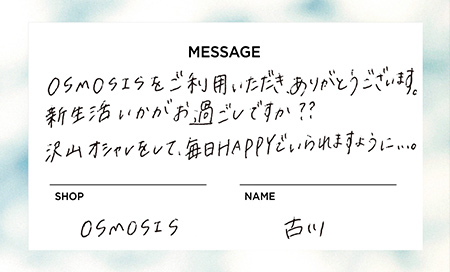 MESSAGE
OSMOSISをご利用いただき、ありがとうございます。
新生活いかがお過ごしですか??
沢山オシャレをして、毎日HAPPYでいられますように...。
SHOP
NAME
OSMOSIS
古川